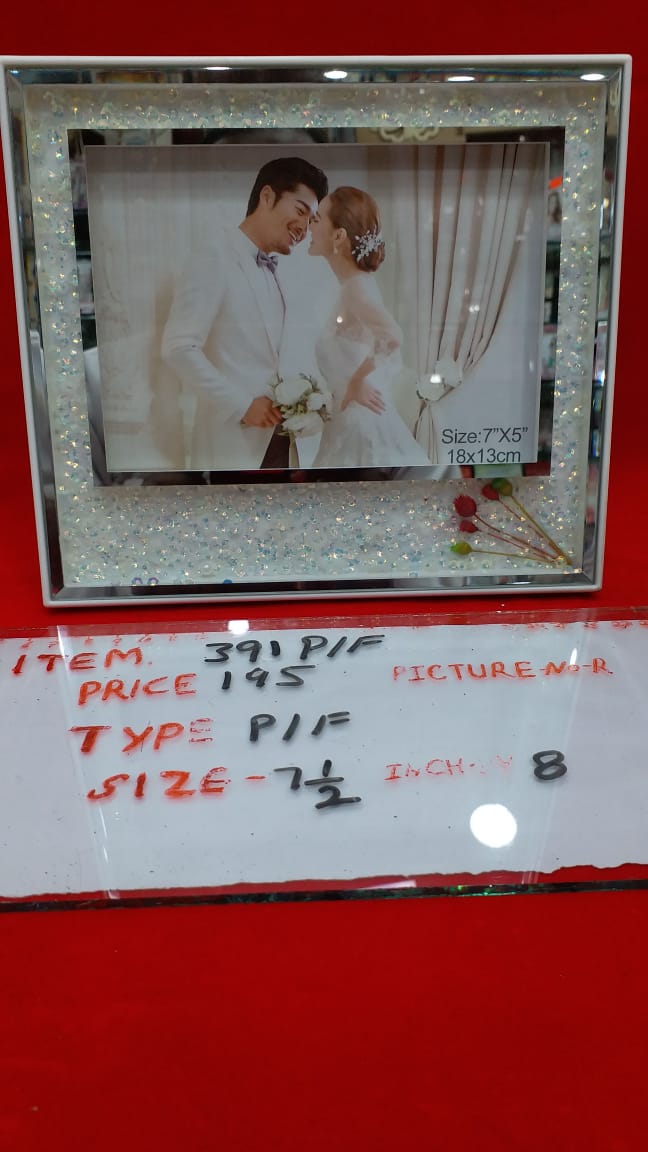 Size:7"X5"
18x13cm
ITEM. 391 P/F
PRICE 195 PICTURE-No-R
TYPE P/F
SIZE - 7 1/2 INCH- 8